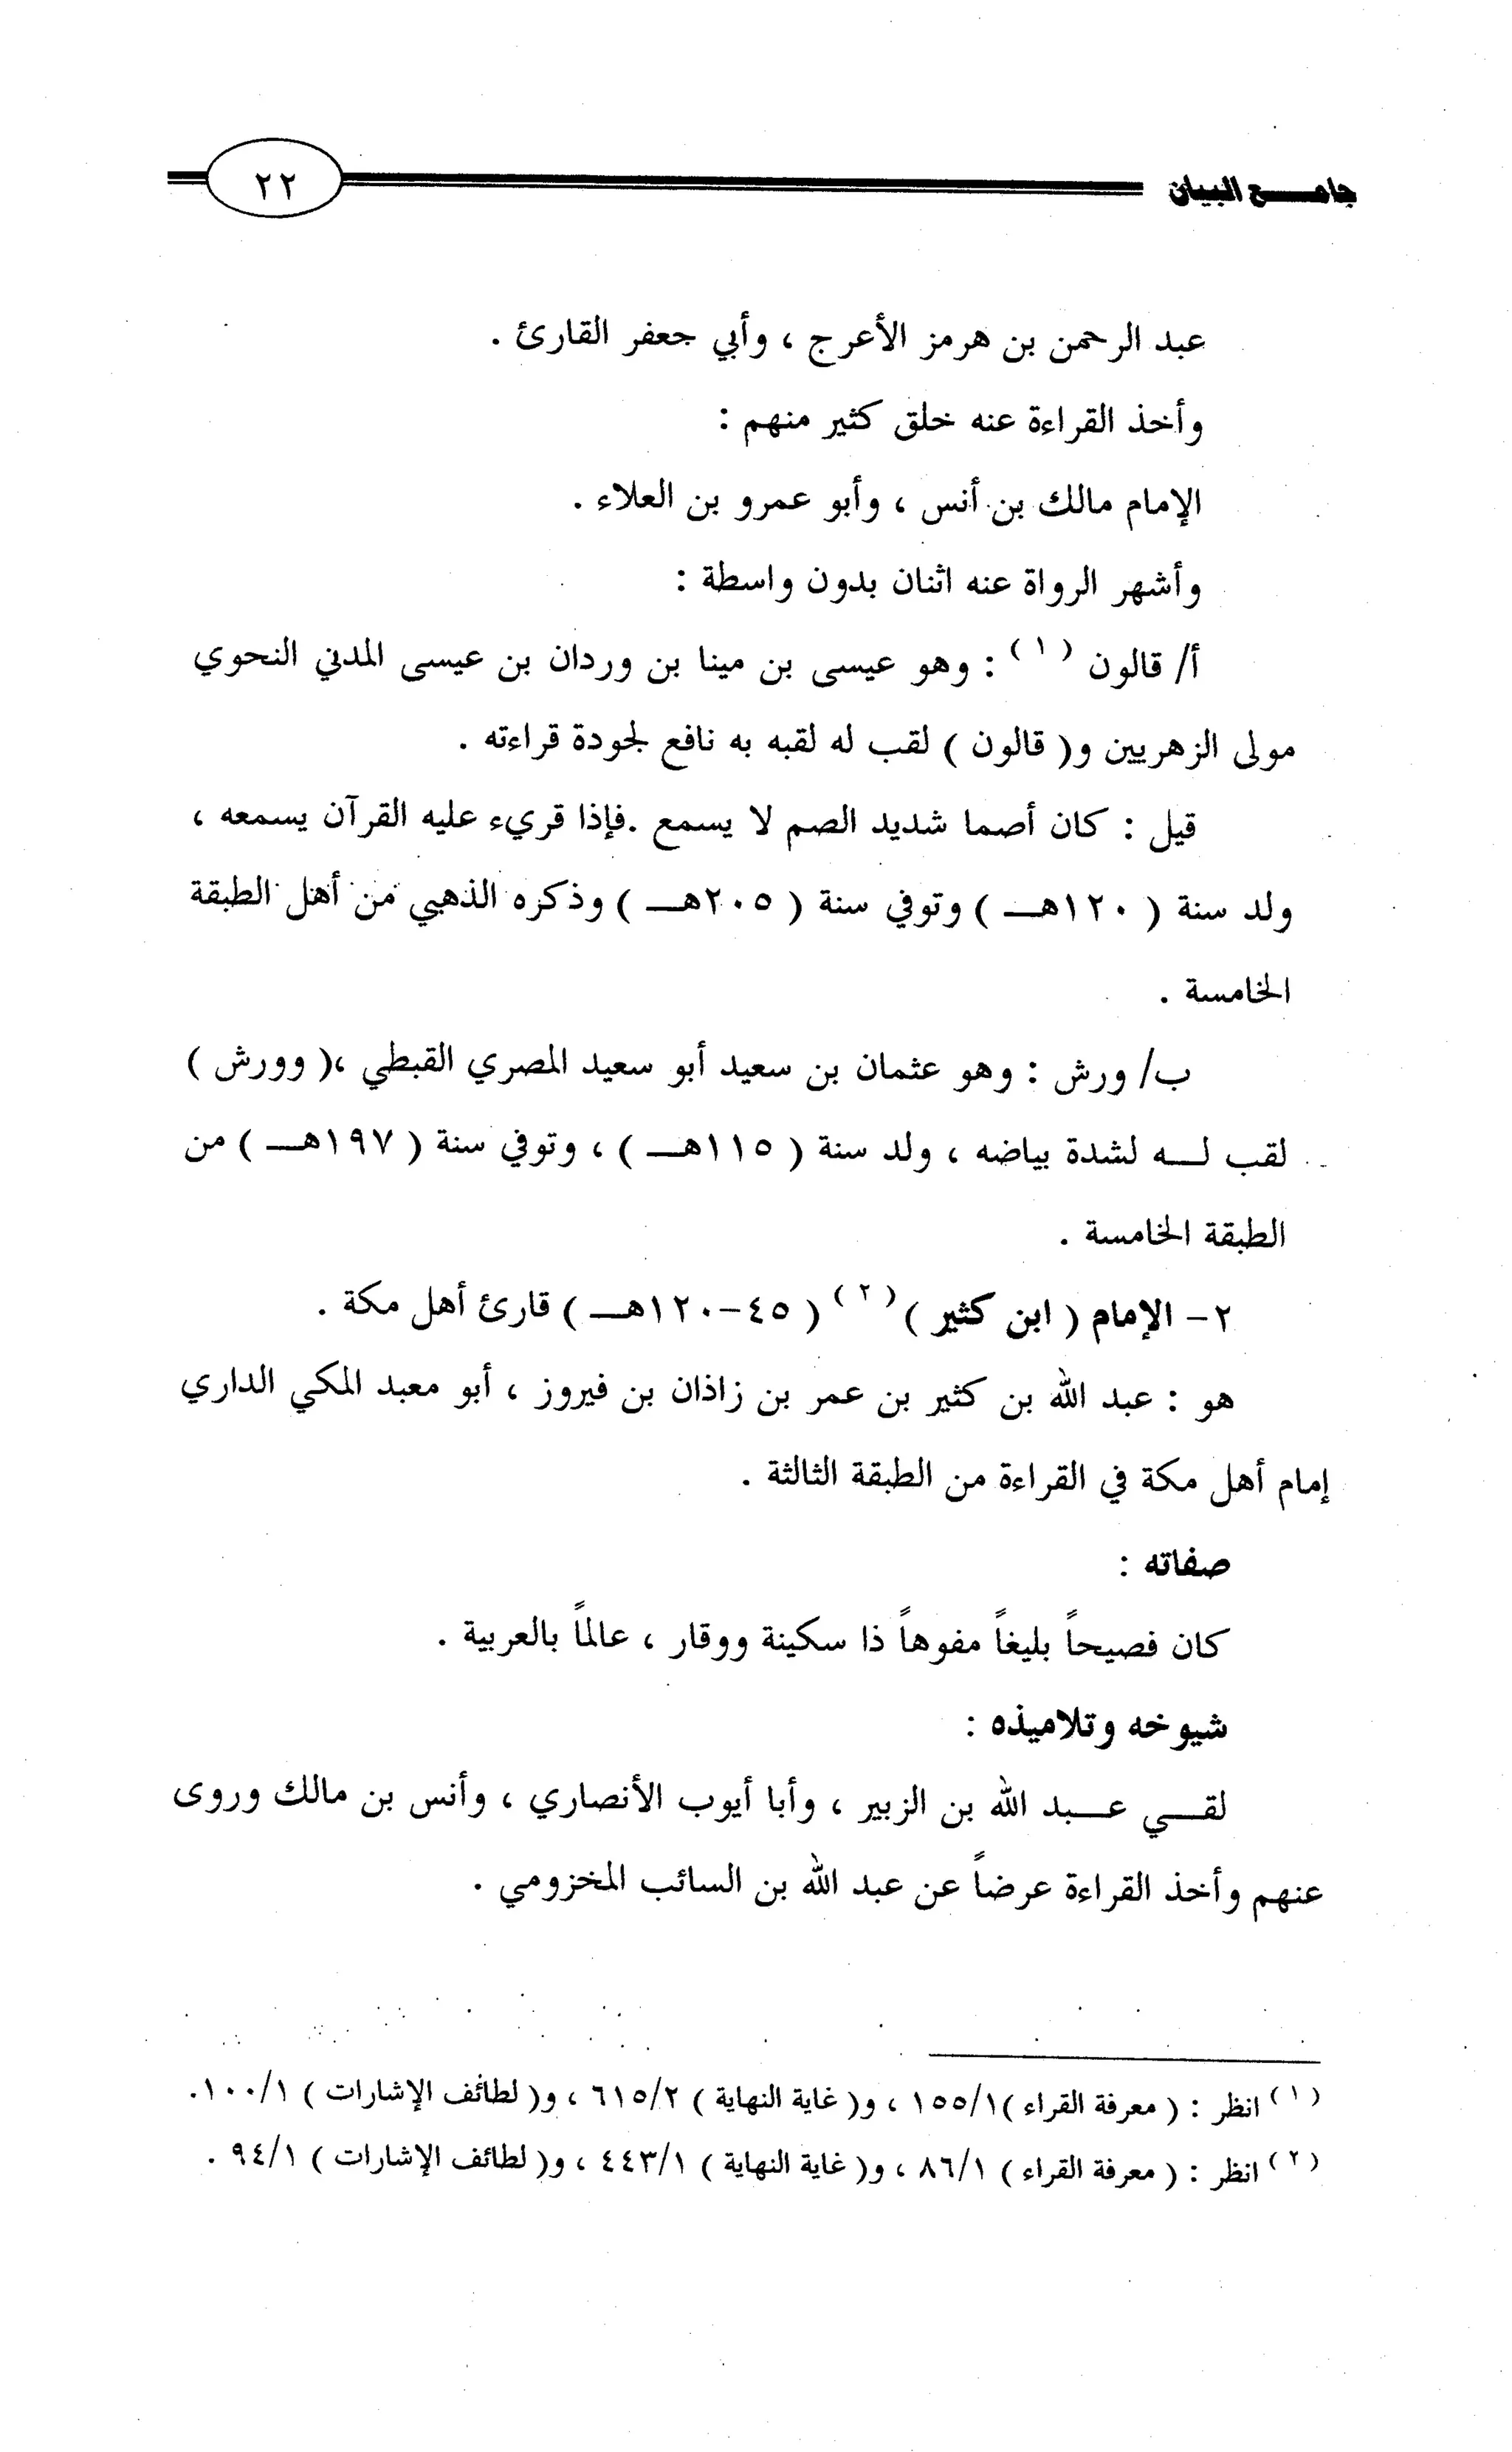 جامـــع البيان
٢٢
عبد الرحمن بن هرمز الأعرج ، وأبي جعفر القارئ .
وأخذ القراءة عنه خلق كثير منهم :
الإمام مالك بن أنس ، وأبو عمرو بن العلاء .
وأشهر الرواة عنه اثنان بدون واسطة :
أ/ قالون (١) : وهو عيسى بن مينا بن وردان بن عيسى المدني النحوي
مولى الزهريين و( قالون ) لقب له لقبه به نافع لجودة قراءته .
قيل : كان أصما شديد الصم لا يسمع .فإذا قريء عليه القرآن يسمعه ،
ولد سنة ( ١٢٠هـ ) وتوفي سنة ( ٢٠٥هـ ) وذكره الذهبي من أهل الطبقة
الخامسة .
ب/ ورش : وهو عثمان بن سعيد أبو سعيد المصري القبطي ،( وورش )
لقب لــه لشدة بياضه ، ولد سنة ( ١١٥هـ ) ، وتوفي سنة ( ١٩٧هـ ) من
الطبقة الخامسة .
٢- الإمام ( ابن كثير ) (٢) ( ٤٥-١٢٠هـ ) قارئ أهل مكة .
هو : عبد الله بن كثير بن عمر بن زاذان بن فيروز ، أبو معبد المكي الداري
إمام أهل مكة في القراءة من الطبقة الثالثة .
صفاته :
كان فصيحاً بليغاً مفوهاً ذا سكينة ووقار ، عالماً بالعربية .
شيوخه وتلاميذه :
لقــي عــبد الله بن الزبير ، وأبا أيوب الأنصاري ، وأنس بن مالك وروى
عنهم وأخذ القراءة عرضاً عن عبد الله بن السائب المخزومي .
(١) انظر : ( معرفة القراء )١٥٥/١ ، و( غاية النهاية ) ٦١٥/٢ ، و( لطائف الإشارات ) ١٠٠/١.
(٢) انظر : ( معرفة القراء ) ٨٦/١ ، و( غاية النهاية ) ٤٤٣/١ ، و( لطائف الإشارات ) ٩٤/١ .